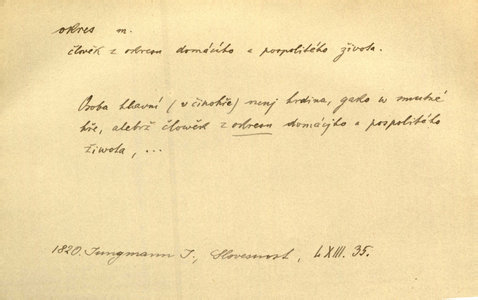 okres m.
člověk z okresu domácího a pospolitého života.
Osoba hlavní (v činohře) nenj hrdina, gako w smutné
hře, alebrž člowěk z okresu domácjho a pospolitého
žiwota, ...
1820. Jungmann J., Slovesnost, LXIII. 35.